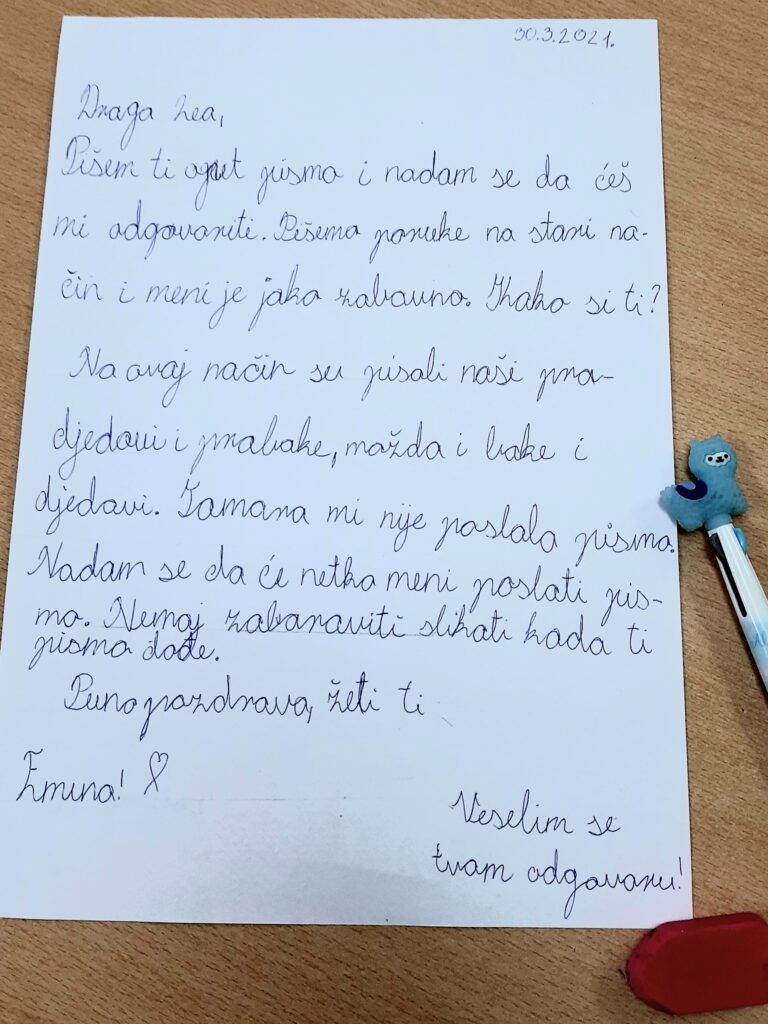 30.3.2021.
Draga Lea,
Pišem ti opet pismo i nadam se da ćeš
mi odgovoriti. Pišemo poruke na stari na-
čin i meni je jako zabavno. Kako si ti?
Na ovaj način su pisali naši pra-
djedovi i prabake, možda i bake i
djedovi. Tamara mi nije poslala pismo.
Nadam se da će netko meni poslati pis-
mo. Nemoj zaboraviti slikati kada ti
pismo dođe.
Puno pozdrava, želi ti
Emina! ♡
Veselim se
tvom odgovoru!